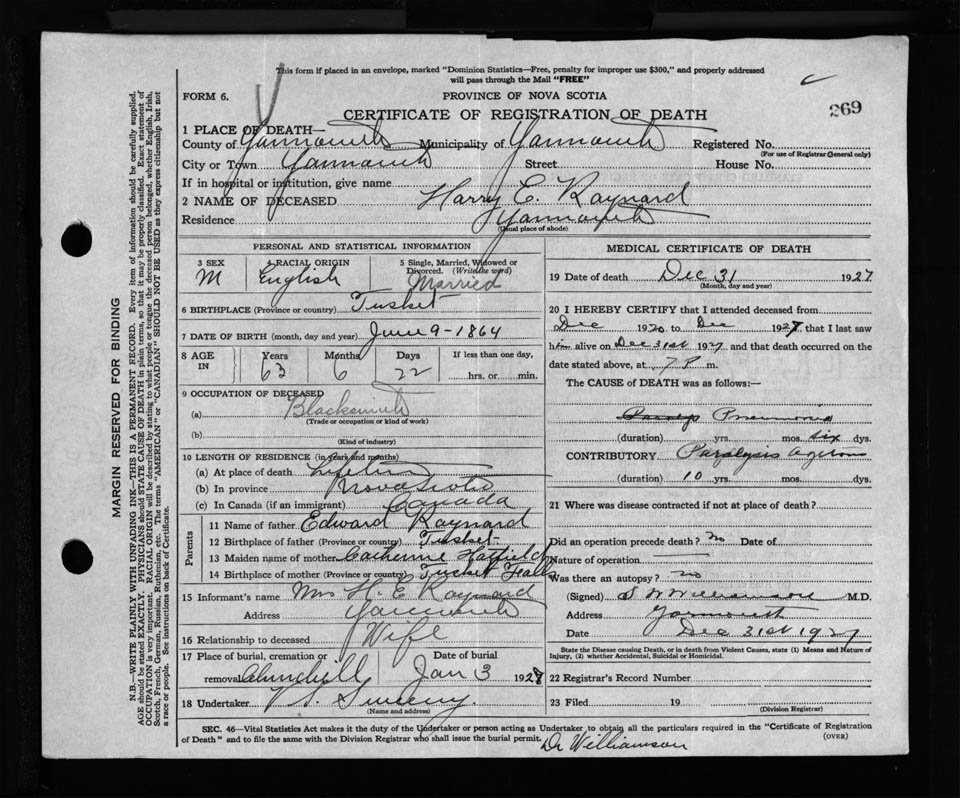 This form if placed in an envelope, marked "Dominion Statistics—Free, penalty for improper use $300," and properly addressed
will pass through the Mail "FREE"
FORM 6.
PROVINCE OF NOVA SCOTIA
269
CERTIFICATE OF REGISTRATION OF DEATH
1 PLACE OF DEATH—
County of Yarmouth Municipality of Yarmouth Registered No.
(For use of Registrar General only)
City or Town Yarmouth Street House No.
If in hospital or institution, give name
2 NAME OF DECEASED Harry E. Raynard
Residence Yarmouth
(Usual place of abode)
PERSONAL AND STATISTICAL INFORMATION
3 SEX M
4 RACIAL ORIGIN English
5 Single, Married, Widowed or Divorced. (Write the word) Married
6 BIRTHPLACE (Province or country) Tusket
7 DATE OF BIRTH (month, day and year) June 9-1864
8 AGE IN Years 63 Months 6 Days 22 If less than one day, hrs. or min.
9 OCCUPATION OF DECEASED
(a) Blacksmith
(Trade or occupation or kind of work)
(b)
(Kind of industry)
10 LENGTH OF RESIDENCE (in years and months)
(a) At place of death Lifetime
(b) In province Nova Scotia
(c) In Canada (if an immigrant) Canada
Parents
11 Name of father Edward Raynard
12 Birthplace of father (Province or country) Tusket
13 Maiden name of mother Catherine Hatfield
14 Birthplace of mother (Province or country) Tusket Falls
15 Informant's name Mrs H. E. Raynard
Address Yarmouth
16 Relationship to deceased Wife
17 Place of burial, cremation or removal Churchill Date of burial Jan 3 1928
18 Undertaker V. S. Sweeny
(Name and address)
MEDICAL CERTIFICATE OF DEATH
19 Date of death Dec 31 1927
(Month, day and year)
20 I HEREBY CERTIFY that I attended deceased from
Dec 1920 to Dec 1927 that I last saw
him alive on Dec 31st 1927 and that death occurred on the
date stated above, at 7 P m.
The CAUSE of DEATH was as follows:
Pneumonia
(duration) yrs. mos. six dys.
CONTRIBUTORY Paralysis Agitans
(duration) 10 yrs. mos. dys.
21 Where was disease contracted if not at place of death?
Did an operation precede death? no Date of
Nature of operation
Was there an autopsy? no
(Signed) S W Williamson M.D.
Address Yarmouth
Date Dec 31st 1927
State the Disease causing Death, or in death from Violent Causes, state (1) Means and Nature of
Injury, (2) whether Accidental, Suicidal or Homicidal.
22 Registrar's Record Number
23 Filed 19
(Division Registrar)
SEC. 46—Vital Statistics Act makes it the duty of the Undertaker or person acting as Undertaker to obtain all the particulars required in the "Certificate of Registration
of Death" and to file the same with the Division Registrar who shall issue the burial permit.
(OVER)
Dr Williamson
MARGIN RESERVED FOR BINDING
N.B.—WRITE PLAINLY WITH UNFADING INK—THIS IS A PERMANENT RECORD. Every item of information should be carefully supplied.
AGE should be stated EXACTLY. PHYSICIANS should STATE CAUSE OF DEATH in plain terms, so that it may be properly classified. Exact statement of
OCCUPATION is very important. RACIAL ORIGIN will be described by stating to what people or tongue the deceased person belonged, whether English, Irish,
Scotch, French, German, Russian, Ruthenian, etc. The terms "AMERICAN" or "CANADIAN" SHOULD NOT BE USED as they express citizenship but not
a race or people. See instructions on back of Certificate.